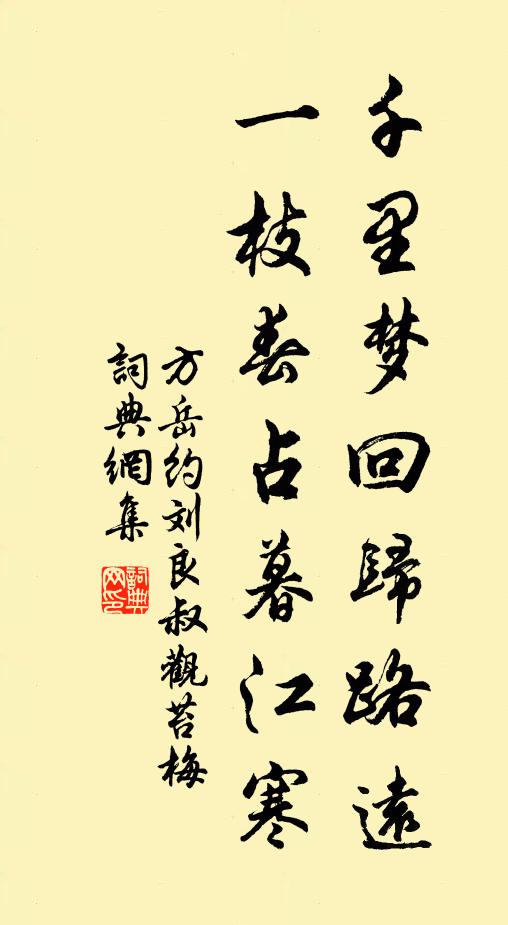 千里梦回歸路遠
一枝春占暮江寒
方岳約刘良叔觀苔梅
詞典網集
詞典网印